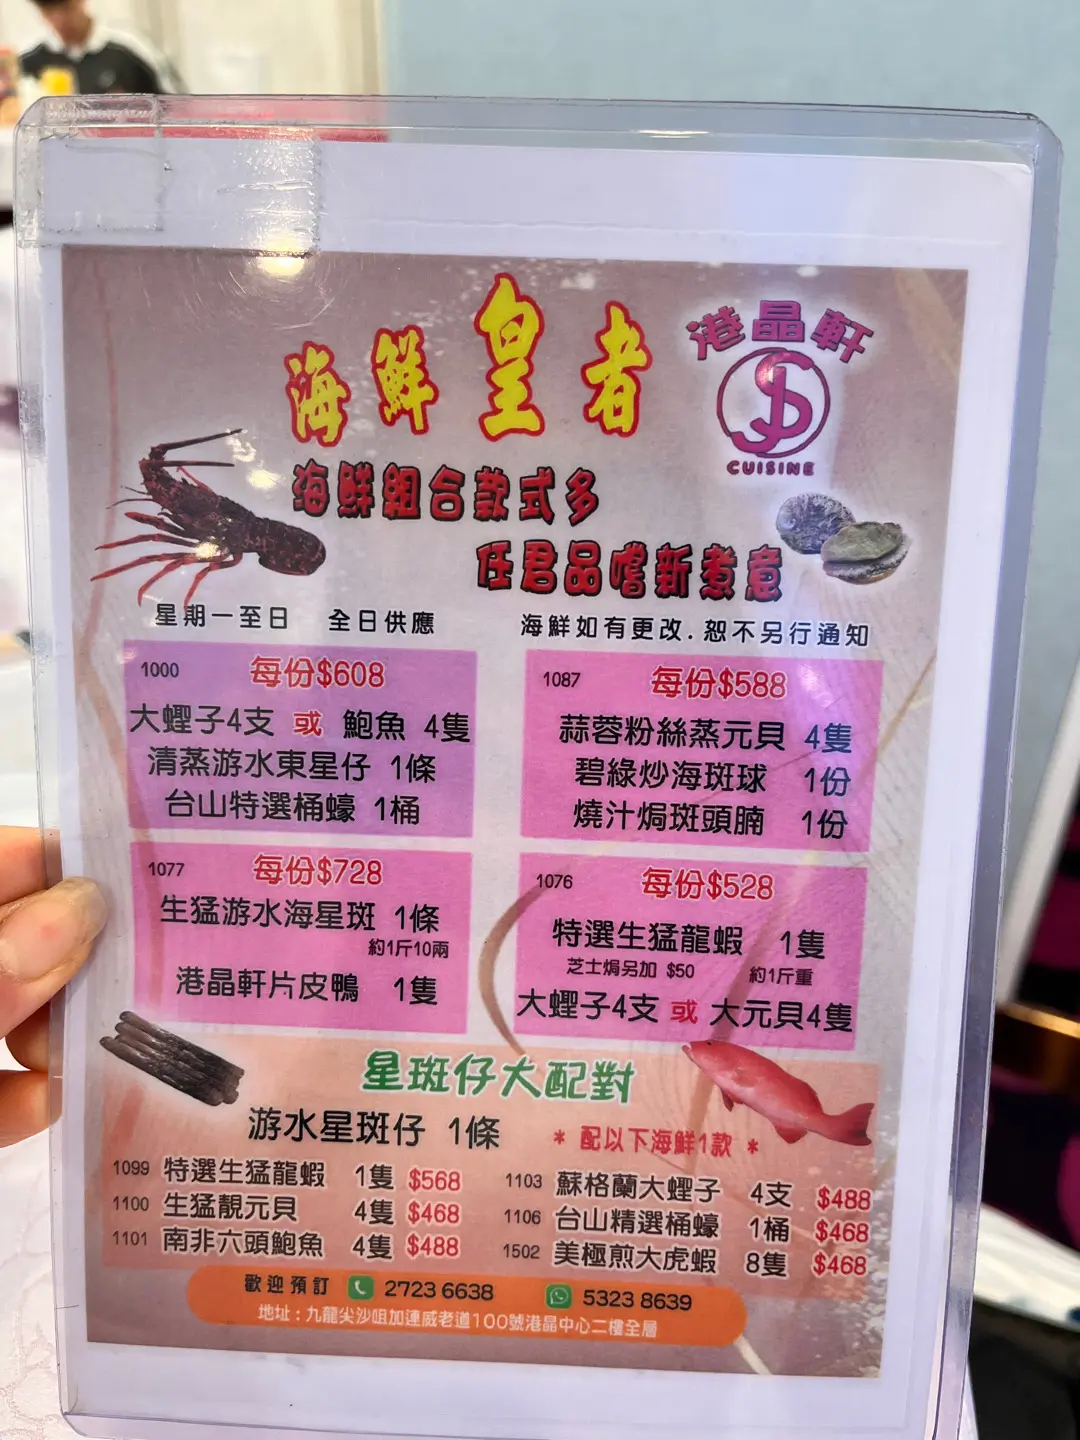 海鮮皇者
港晶軒
CUISINE
海鮮組合款式多
任君品嚐新煮意
星期一至日 全日供應
海鮮如有更改.恕不另行通知
1000 每份$608
大蟶子4支 或 鮑魚 4隻
清蒸游水東星仔 1條
台山特選桶蠔 1桶
1087 每份$588
蒜蓉粉絲蒸元貝 4隻
碧綠炒海斑球 1份
燒汁焗斑頭腩 1份
1077 每份$728
生猛游水海星斑 1條
約1斤10兩
港晶軒片皮鴨 1隻
1076 每份$528
特選生猛龍蝦 1隻
芝士焗另加 $50 約1斤重
大蟶子4支 或 大元貝4隻
星斑仔大配對
游水星斑仔 1條 * 配以下海鮮1款 *
1099 特選生猛龍蝦 1隻 $568
1100 生猛靚元貝 4隻 $468
1101 南非六頭鮑魚 4隻 $488
1103 蘇格蘭大蟶子 4支 $488
1106 台山精選桶蠔 1桶 $468
1502 美極煎大虎蝦 8隻 $468
歡迎預訂 2723 6638 5323 8639
地址：九龍尖沙咀加連威老道100號港晶中心二樓全層